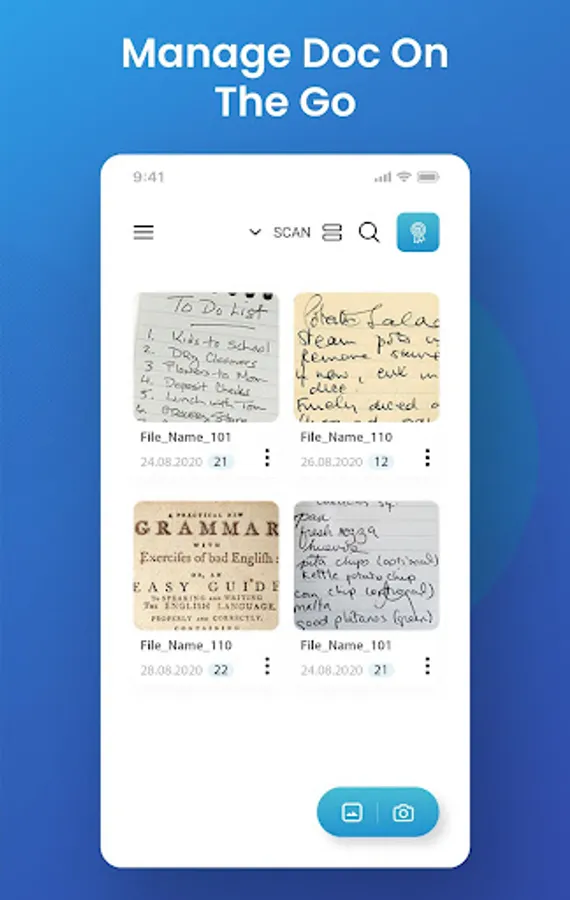 Manage Doc On
The Go
9:41
SCAN
To Do List
1. Kids to School
2. Dry Cleaners
3. Flowers to Mom
4. Deposit Checks
5. Lunch with Tom
6. Grocery Store
File_Name_101
24.08.2020 21
Potato Salad
Steam
Remove
if new, cut in
dice.
Finely diced
File_Name_110
26.08.2020 12
A PRACTICAL NEW
GRAMMAR
WITH
Exercises of bad English:
OR, AN
EASY GUIDE
To SPEAKING and WRITING
THE ENGLISH LANGUAGE,
PROPERLY and CORRECTLY,
CONTAINING
File_Name_110
28.08.2020 22
fresh
pita chips (optional)
Kettle potato chip
chip (optional)
good platanos (green)
File_Name_101
24.08.2020 21